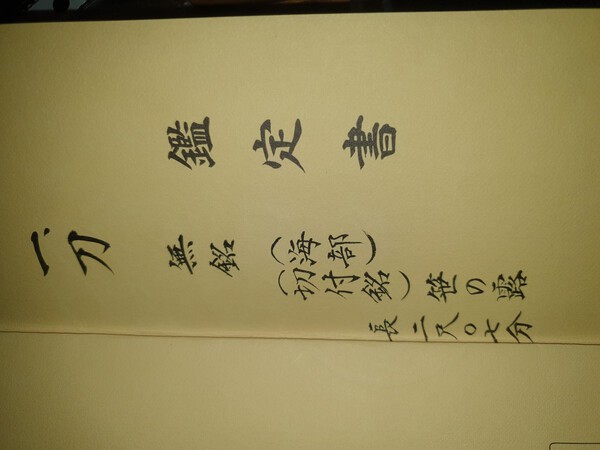 鑑定書
一、刀 無銘(海部)
(切付銘)笹の露
長二尺〇七分